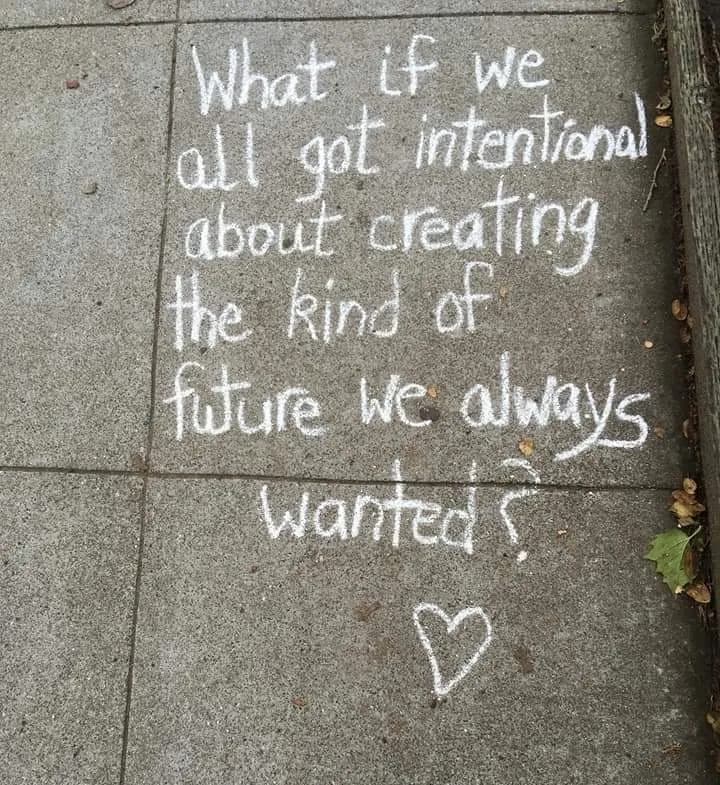 What if we
all got intentional
about creating
the kind of
future we always
wanted?